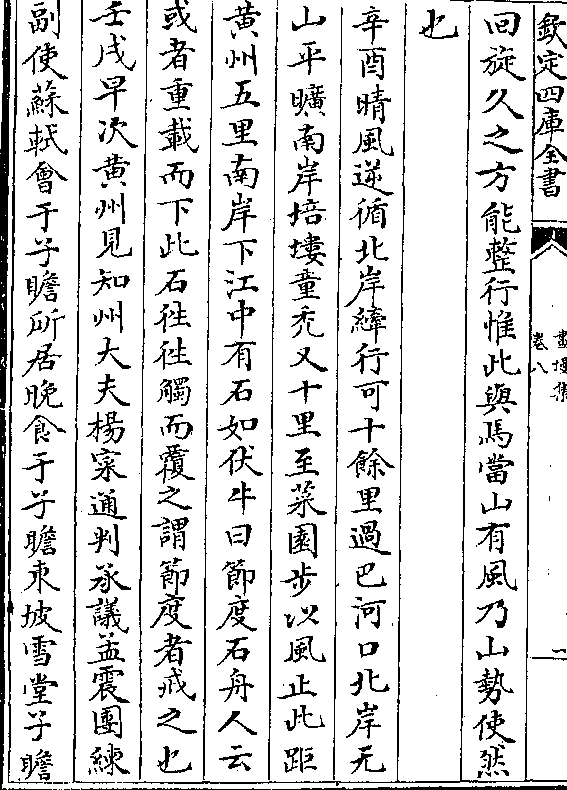 欽定四庫全書
畫墁集
卷八
回旋久之方能整行惟此與馬當山有風乃山勢使然
也
辛酉晴風逆循北岸縴行可十餘里過巴河口北岸无
山平曠南岸培塿童禿又十里至菜園步以風止此距
黄州五里南岸下江中有石如伏牛曰節度石舟人云
或者重載而下此石徃徃觸而覆之謂節度者戒之也
壬戌早次黄州見知州大夫楊寀通判承議孟震團練
副使蘇軾會于子瞻所居晚食于子瞻東坡雪堂子瞻